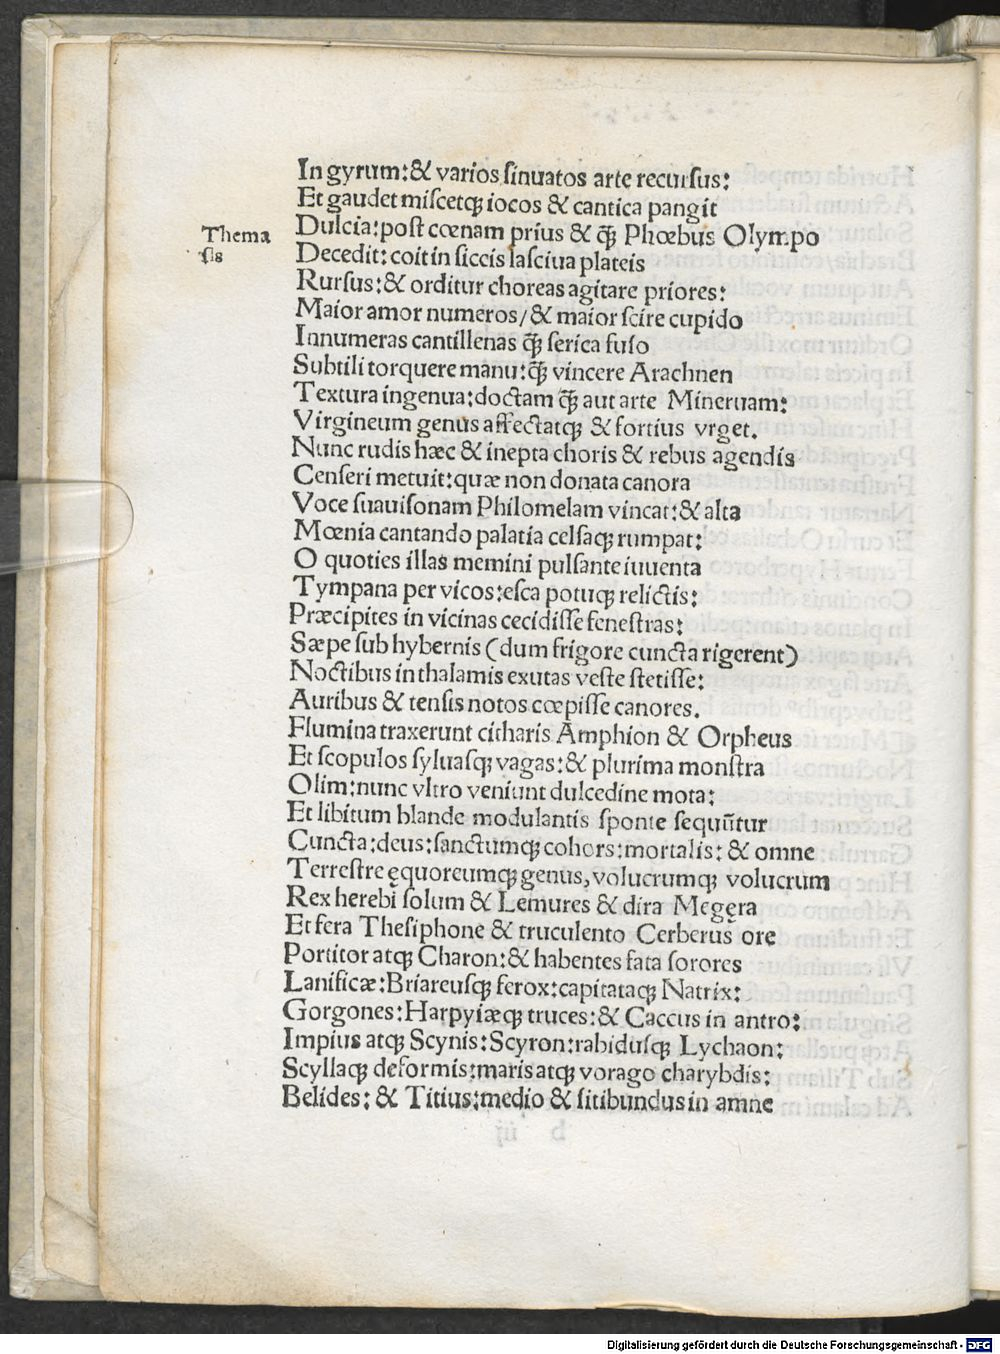 In gyrum:& varios sinuatos arte recursus:
Et gaudet miscetqꝫ iocos & cantica pangit
Thema
sis
Dulcia:post cœnam prius & q̃ꝫ Phœbus Olympo
Decedit:coit in siccis lasciua plateis
Rursus:& orditur choreas agitare priores:
Maior amor numeros/& maior scire cupido
Innumeras cantillenas q̃ꝫ serica fuso
Subtili torquere manu:q̃ꝫ vincere Arachnen
Textura ingenua:doctam q̃ꝫ aut arte Mineruam:
Virgineum genus affectatqꝫ & fortius vrget.
Nunc rudis hæc & inepta choris & rebus agendis
Censeri metuit:quæ non donata canora
Voce suauisonam Philomelam vincat:& alta
Mœnia cantando palatia celsaqꝫ rumpat:
O quoties illas memini pulsante iuuenta
Tympana per vicos:esca potuqꝫ relictis:
Præcipites in vicinas cecidisse fenestras:
Sæpe sub hybernis (dum frigore cuncta rigerent)
Noctibus in thalamis exutas veste stetisse:
Auribus & tensis notos cœpisse canores.
Flumina traxerunt citharis Amphion & Orpheus
Et scopulos syluasqꝫ vagas:& plurima monstra
Olim:nunc vltro veniunt dulcedine mota:
Et libitum blande modulantis sponte sequũtur
Cuncta:deus:sanctumqꝫ cohors:mortalis:& omne
Terrestre ęquoreumqꝫ genus,volucrumqꝫ volucrum
Rex herebi solum & Lemures & dira Megęra
Et fera Thesiphone & truculento Cerberus ore
Portitor atqꝫ Charon:& habentes fata sorores
Lanificæ:Briareusqꝫ ferox:capitataqꝫ Natrix:
Gorgones:Harpyiæqꝫ truces:& Caccus in antro:
Impius atqꝫ Scynis:Scyron:rabidusqꝫ Lychaon:
Scyllaqꝫ deformis:maris atqꝫ vorago charybdis:
Belides:& Titius:medio & sitibundus in amne
Digitalisierung gefördert durch die Deutsche Forschungsgemeinschaft - DFG